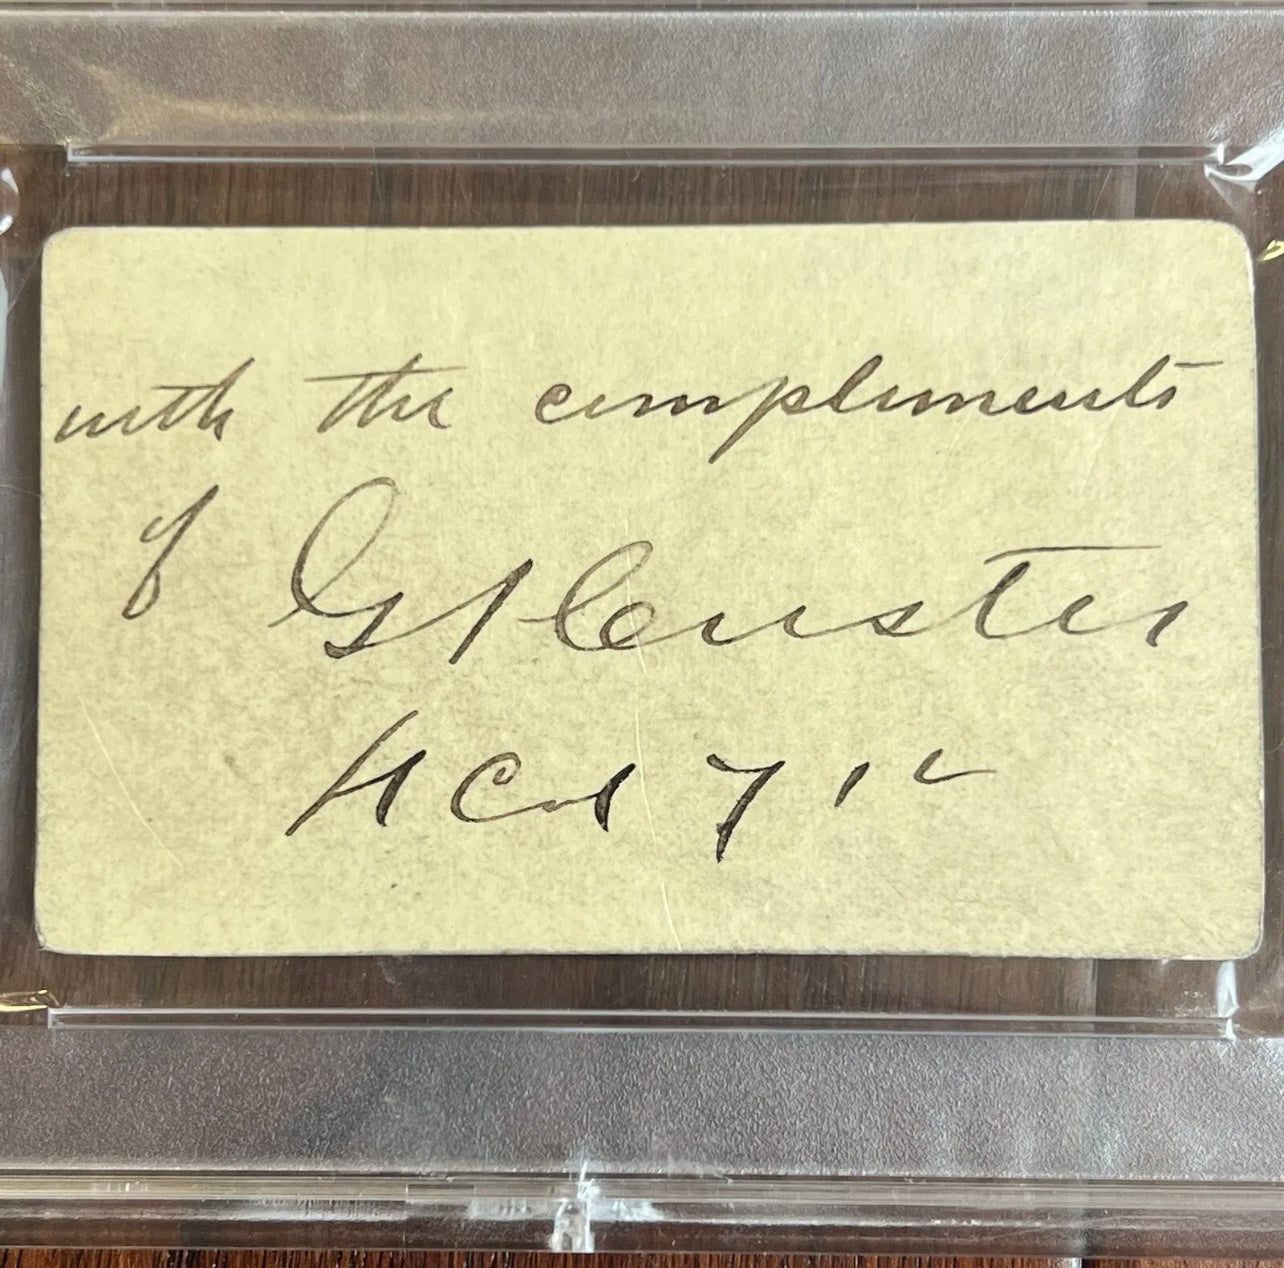 with the compliments
of G A Custer